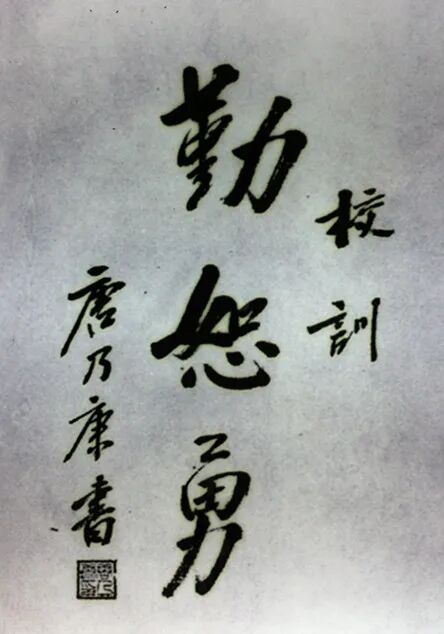 校訓
勤恕勇
唐乃康書